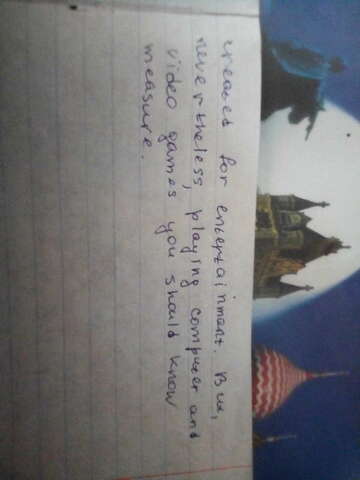 created for entertainment. But,
nevertheless, playing computer and
video games you should know
measure.